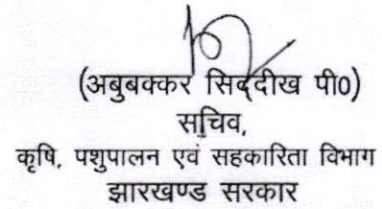 (अबुबक्कर सिद्दीख पी0)
सचिव,
कृषि, पशुपालन एवं सहकारिता विभाग
झारखण्ड सरकार